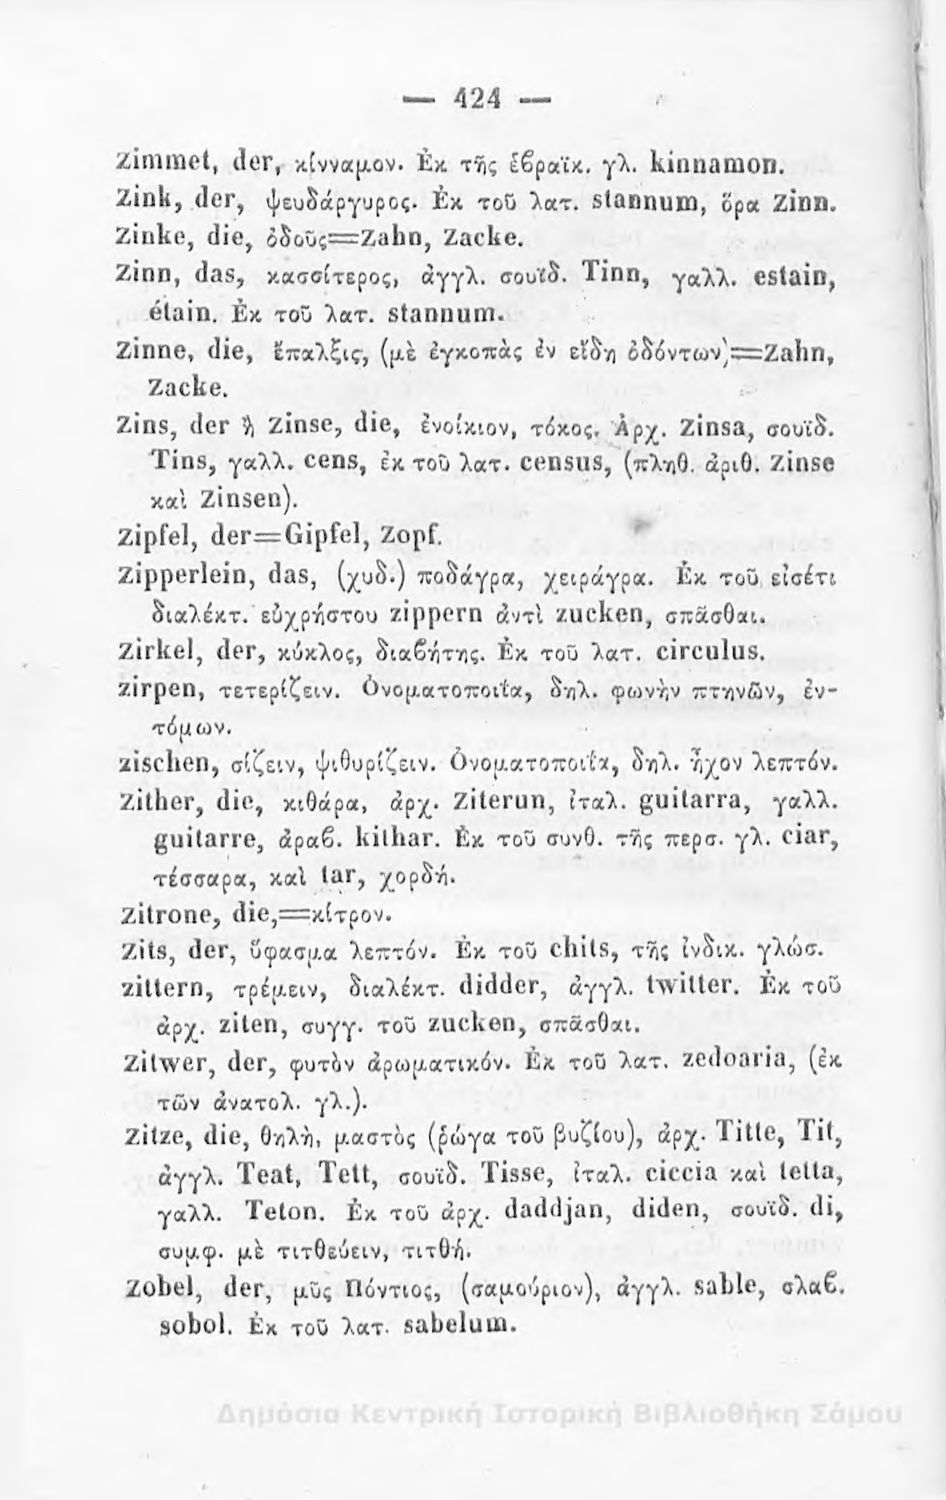 — 424 —
Zimmet, der, κίνναμον. Ἐκ τῆς ἑβραϊκ. γλ. kinnamon.
Zink, der, ψευδάργυρος. Ἐκ τοῦ λατ. stannum, ὅρα Zinn.
Zinke, die, ὀδοῦς=Zahn, Zacke.
Zinn, das, κασσίτερος, ἀγγλ. σουϊδ. Tinn, γαλλ. estain,
étain. Ἐκ τοῦ λατ. stannum.
Zinne, die, ἔπαλξις, (μὲ ἐγκοπὰς ἐν εἴδη ὀδόντων)=Zahn,
Zacke.
Zins, der ἢ Zinse, die, ἐνοίκιον, τόκος. Ἀρχ. Zinsa, σουϊδ.
Tins, γαλλ. cens, ἐκ τοῦ λατ. census, (πληθ. ἀριθ. Zinse
καὶ Zinsen).
Zipfel, der=Gipfel, Zopf.
Zipperlein, das, (χυδ.) ποδάγρα, χειράγρα. Ἐκ τοῦ εἰσέτι
διαλέκτ. εὐχρήστου zippern ἀντὶ zucken, σπᾶσθαι.
Zirkel, der, κύκλος, διαβήτης. Ἐκ τοῦ λατ. circulus.
zirpen, τετερίζειν. Ὀνοματοποιΐα, δηλ. φωνὴν πτηνῶν, ἐν-
τόμων.
zischen, σίζειν, ψιθυρίζειν. Ὀνοματοποιΐα, δηλ. ἦχον λεπτόν.
Zither, die, κιθάρα, ἀρχ. Ziterun, ἰταλ. guitarra, γαλλ.
guitarre, ἀραβ. kithar. Ἐκ τοῦ συνθ. τῆς περσ. γλ. ciar,
τέσσαρα, καὶ tar, χορδή.
Zitrone, die,=κίτρον.
Zits, der, ὕφασμα λεπτόν. Ἐκ τοῦ chits, τῆς ἰνδικ. γλώσ.
zittern, τρέμειν, διαλέκτ. didder, ἀγγλ. twitter. Ἐκ τοῦ
ἀρχ. ziten, συγγ. τοῦ zucken, σπᾶσθαι.
Zitwer, der, φυτὸν ἀρωματικόν. Ἐκ τοῦ λατ. zedoaria, (ἐκ
τῶν ἀνατολ. γλ.).
Zitze, die, θηλὴ, μαστὸς (ῥώγα τοῦ βυζίου), ἀρχ. Titte, Tit,
ἀγγλ. Teat, Tett, σουϊδ. Tisse, ἰταλ. ciccia καὶ tetta,
γαλλ. Teton. Ἐκ τοῦ ἀρχ. daddjan, diden, σουϊδ. di,
συμφ. μὲ τιτθεύειν, τιτθή.
Zobel, der, μῦς Πόντιος, (σαμούριον), ἀγγλ. sable, σλαβ.
sobol. Ἐκ τοῦ λατ. sabelum.
Δημόσια Κεντρική Ιστορική Βιβλιοθήκη Σάμου